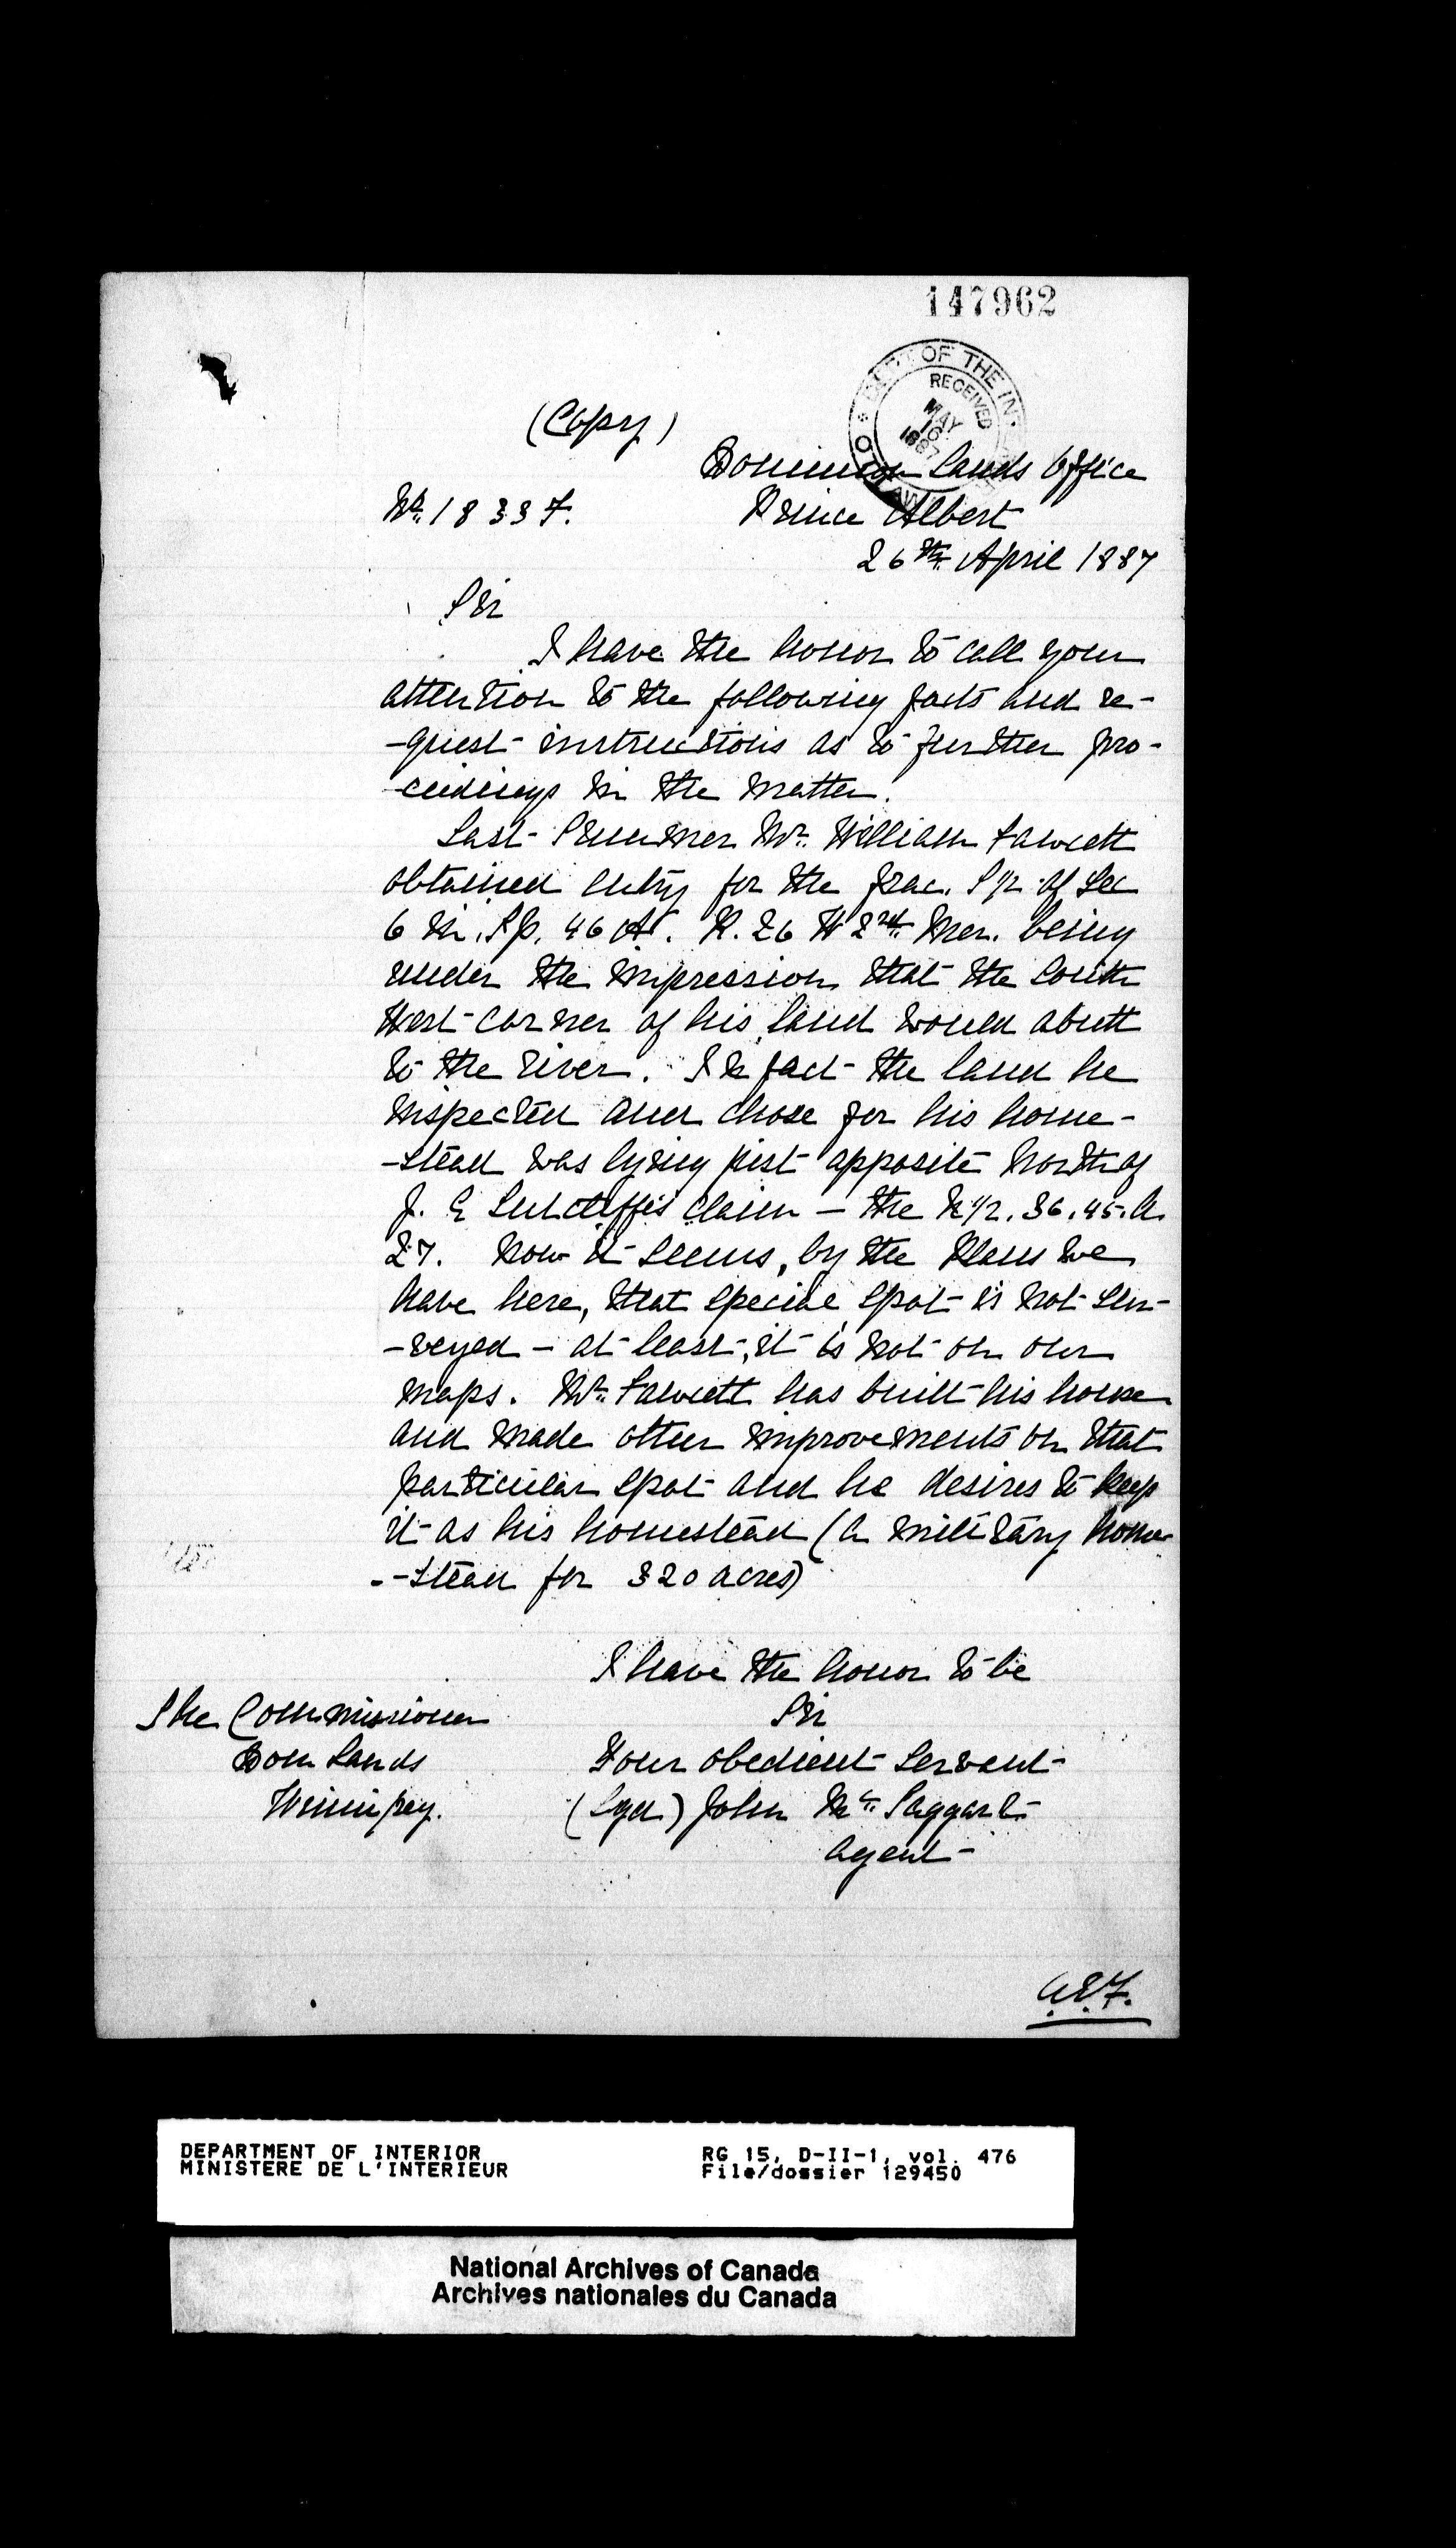 147962
DEPT OF THE INT
RECEIVED
MAY
16
1887
(Copy)
Dominion Lands Office
No. 18337.
Prince Albert
26th April 1887
Sir
I have the honor to call your
attention to the following facts and re-
-quest instructions as to further pro-
-ceedings in the matter.
Last Summer Mr. William Fawcett
obtained entry for the frac. S 1/2 of Sec
6 in. Tp. 46 A. R. 26 W 2nd Mer. being
under the impression that the South
West corner of his land would abutt
to the river. In fact the land he
inspected and chose for his home-
-stead was lying just opposite North of
J. E Sutcliffe's claim – the N 1/2. 36. 45. A.
27. Now it seems, by the Plans we
have here, that special spot is not sur-
-veyed – at least, it is not on our
maps. Mr. Fawcett has built his house
and made other improvements on that
particular spot and he desires to keep
it as his homestead (a military home-
-stead for 320 acres)
I have the honor to be
Sir
Your obedient Servant
(Sgd) John McTaggart
Agent
The Commissioner
Dom Lands
Winnipeg.
DEPARTMENT OF INTERIOR
MINISTERE DE L'INTERIEUR
RG 15, D-II-1, vol. 476
File/dossier 129450
National Archives of Canada
Archives nationales du Canada